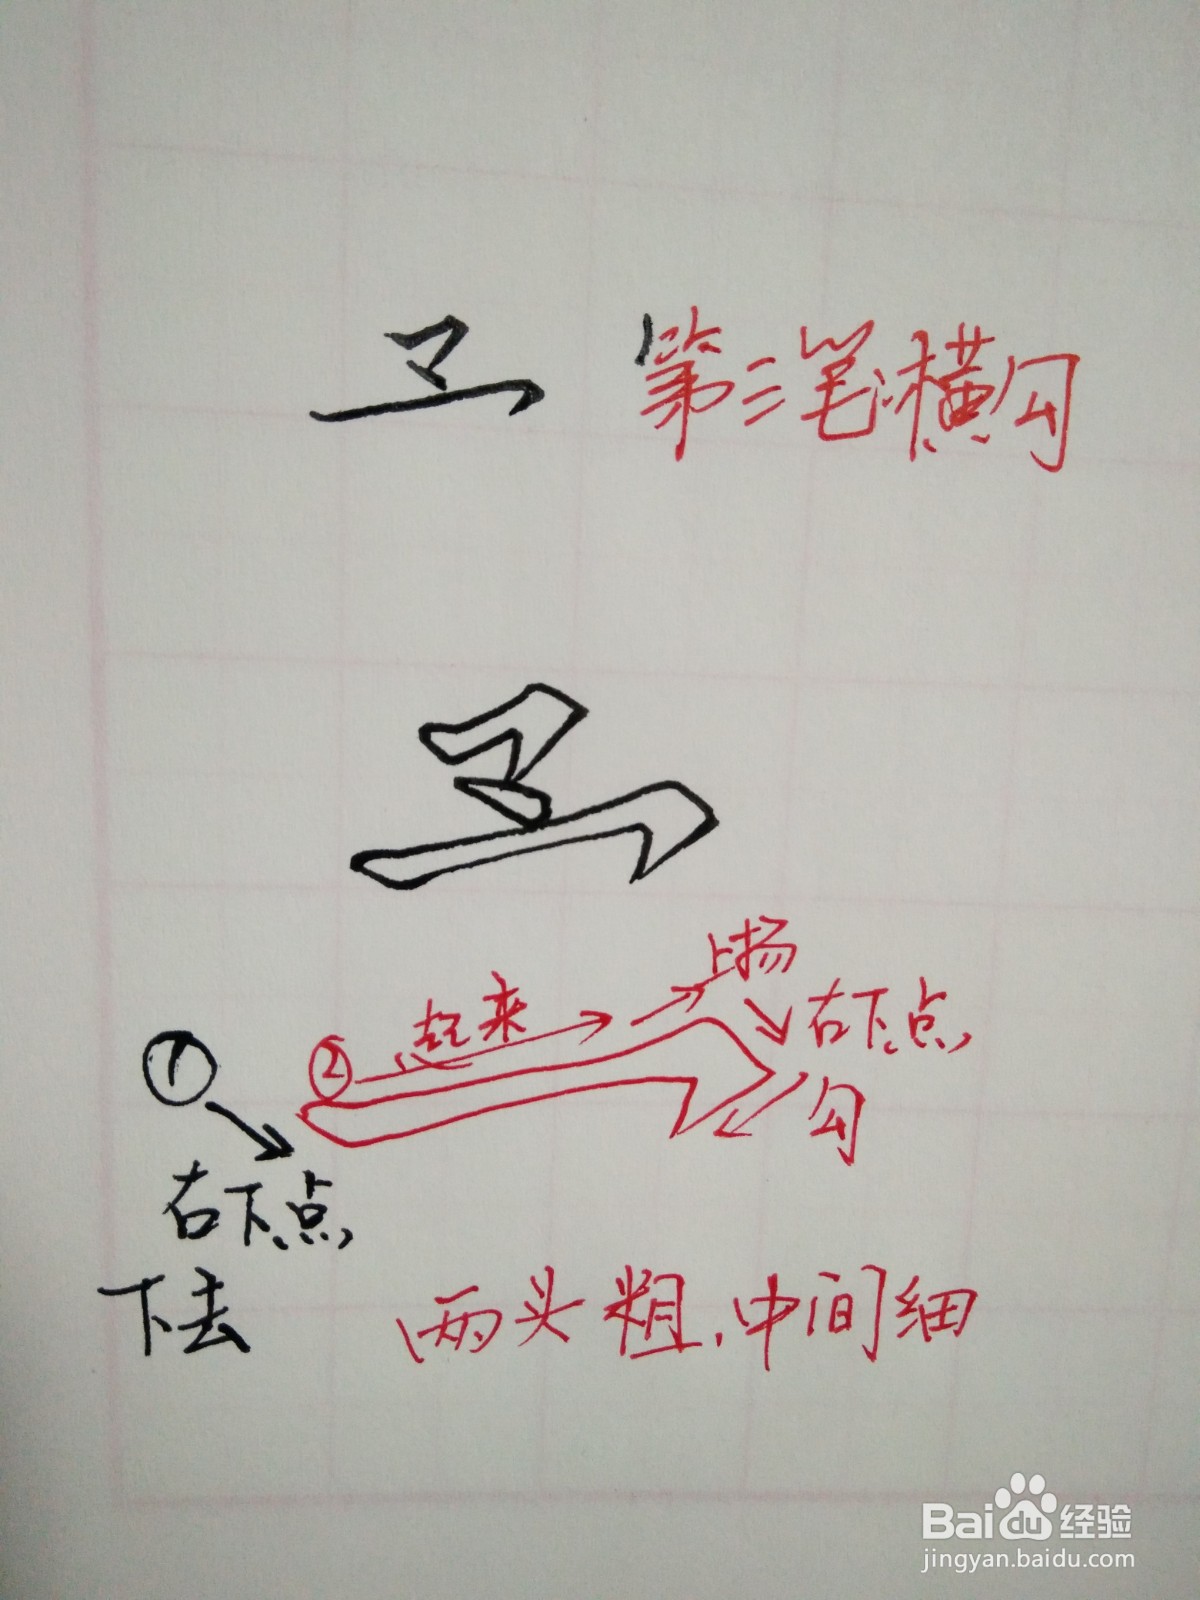 第三笔:横勾
上扬
起来
右下点
① ②
勾
右下点
下去
两头粗,中间细
Baidu经验
jingyan.baidu.com